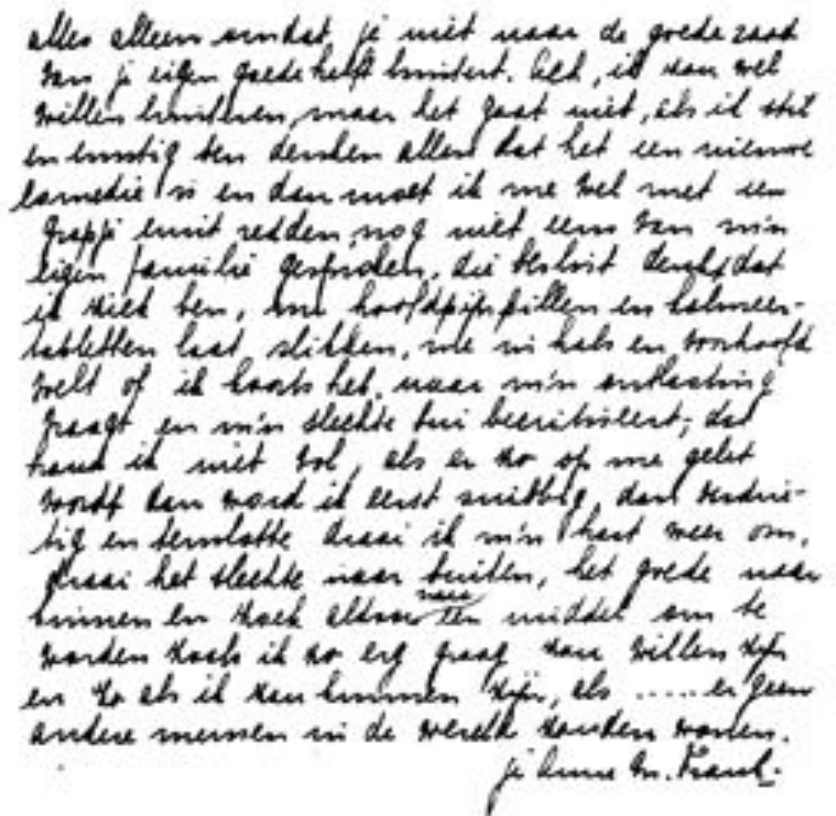 alles alleen omdat je niet naar de goede raad
van je eigen goede helft luistert. Ach, ik zou wel
willen luisteren, maar het gaat niet, als ik stil
en ernstig ben denken allen dat het een nieuwe
comedie is en dan moet ik me wel met een
grapje eruit redden, nog niet eens van m'n
eigen familie gesproken, die beslist denkt dat
ik ziek ben, me hoofdpijnpillen en kalmeer-
tabletten laat slikken, me in hals en voorhoofd
voelt of ik koorts heb, naar m'n ontlasting
vraagt en m'n slechte bui becritiseert, dat
houd ik niet vol, als er zo op me gelet
wordt dan word ik eerst snibbig, dan verdrie-
tig en tenslotte draai ik m'n hart weer om,
draai het slechte naar buiten, het goede naar
binnen en zoek aldoor naar een middel om te
worden zoals ik zo erg graag zou willen zijn
en zo als ik zou kunnen zijn, als ..... er geen
andere mensen in de wereld zouden wonen.
je Anne M. Frank.